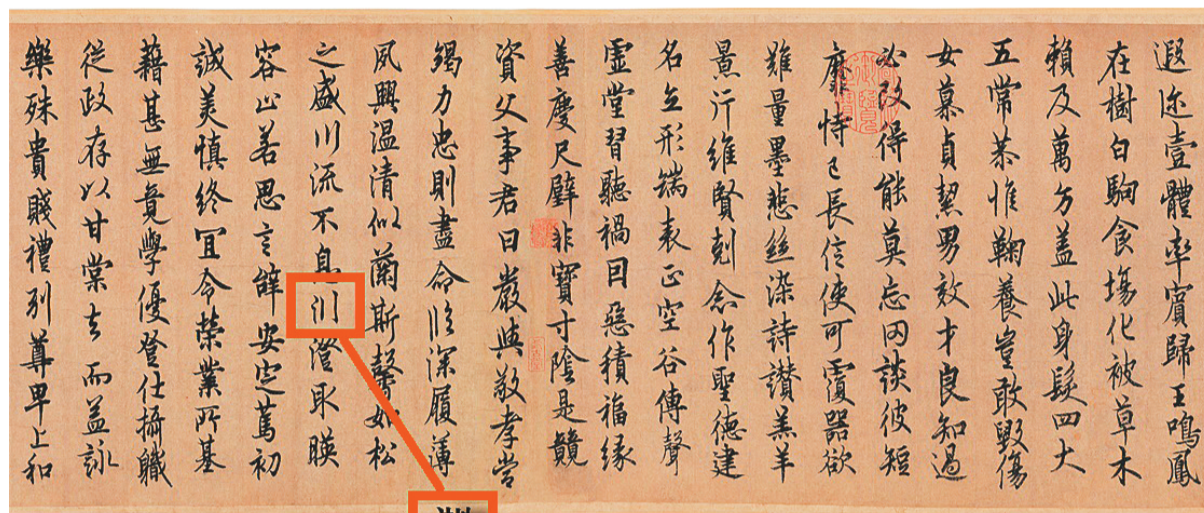 遐迩壹體率賓歸王鳴鳳
在樹白駒食場化被草木
賴及萬方盖此身髮四大
五常恭惟鞠養豈敢毀傷
女慕貞絜男效才良知過
必改得能莫忘罔談彼短
靡恃己長信使可覆器欲
難量墨悲絲染詩讃羔羊
景行維賢剋念作聖德建
名立形端表正空谷傳聲
虛堂習聽禍因惡積福緣
善慶尺璧非寶寸陰是競
資父事君曰嚴與敬孝當
竭力忠則盡命臨深履薄
夙興溫清似蘭斯馨如松
之盛川流不息澄取暎
容止若思言辭安定篤初
誠美慎終宜令榮業所基
藉甚無竟學優登仕攝職
從政存以甘棠去而益詠
樂殊貴賤禮別尊卑上和